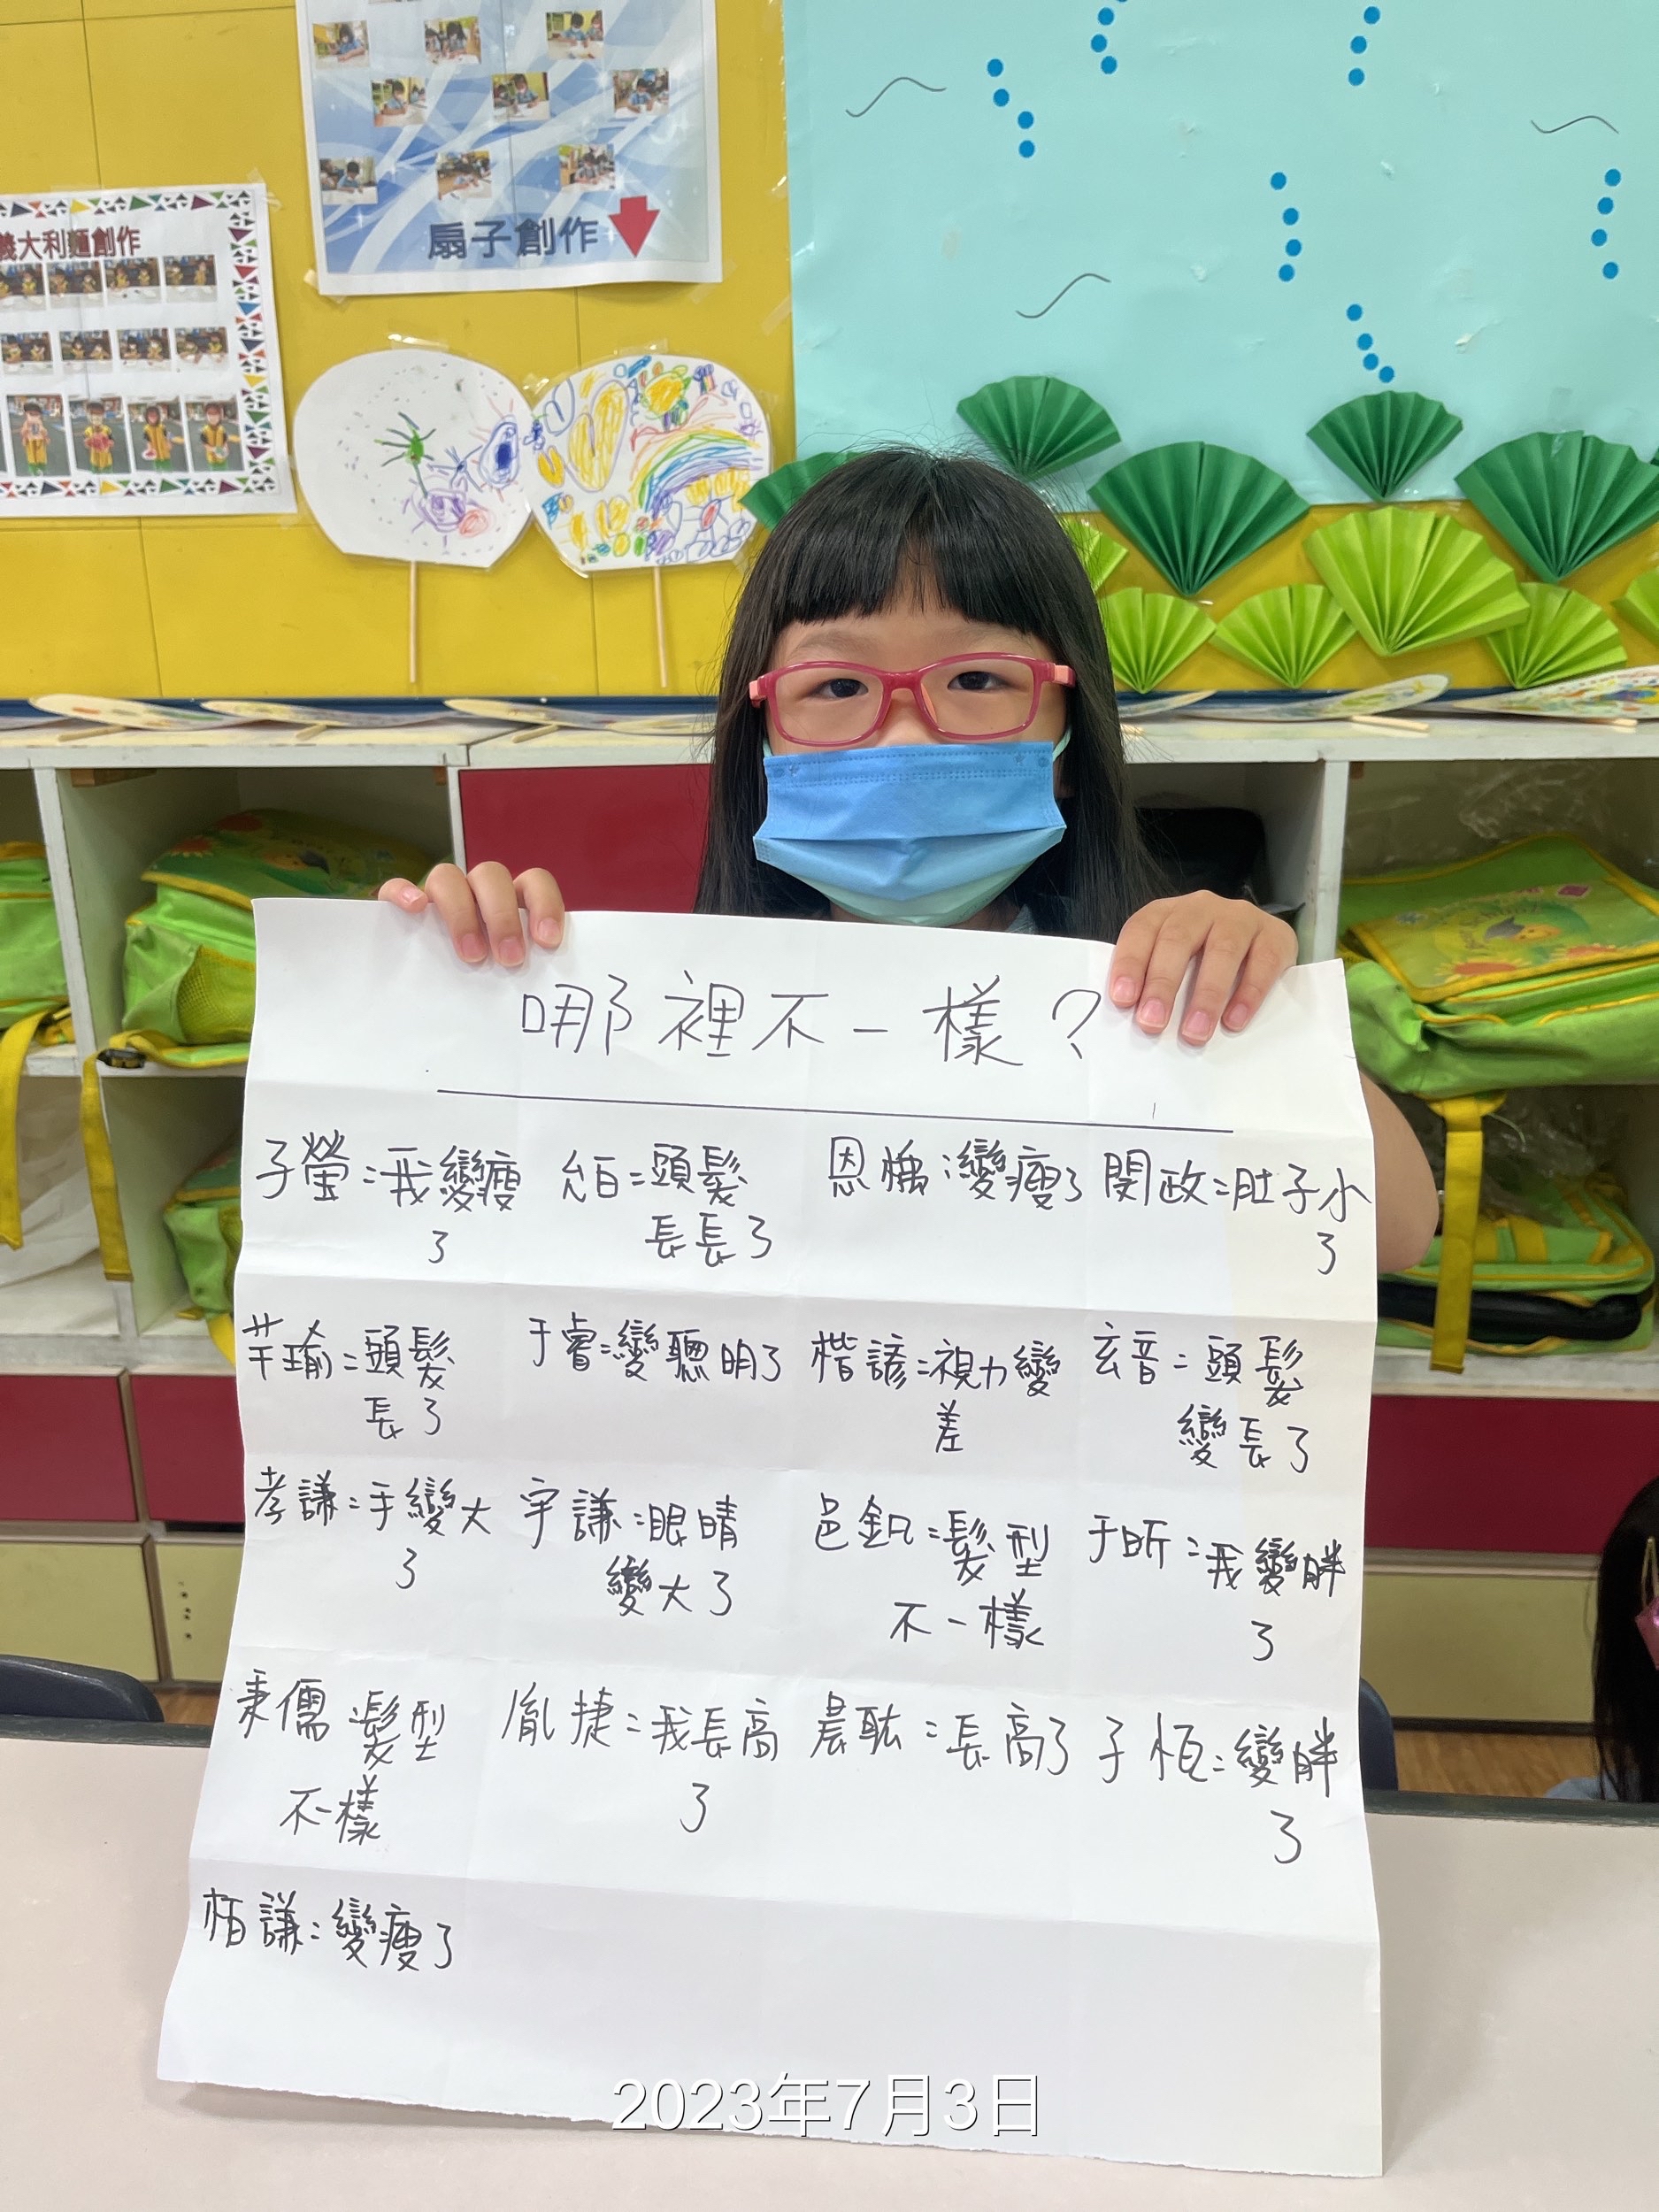 扇子創作
義大利麵創作
哪裡不一樣？
子瑩：我變瘦 允百：頭髮 恩惵：變瘦了 閔政：肚子小
了 長長了 了
芊瑜：頭髮 于睿：變聰明了 楷諺：視力變 玄音：頭髮
長了 差 變長了
孝謙：手變大 宇謙：眼睛 邑釩：髮型 于昕：我變胖
了 變大了 不一樣 了
秉儒：髮型 胤捷：我長高 晨耘：長高了 子恆：變胖
不一樣 了 了
栢謙：變瘦了
2023年7月3日